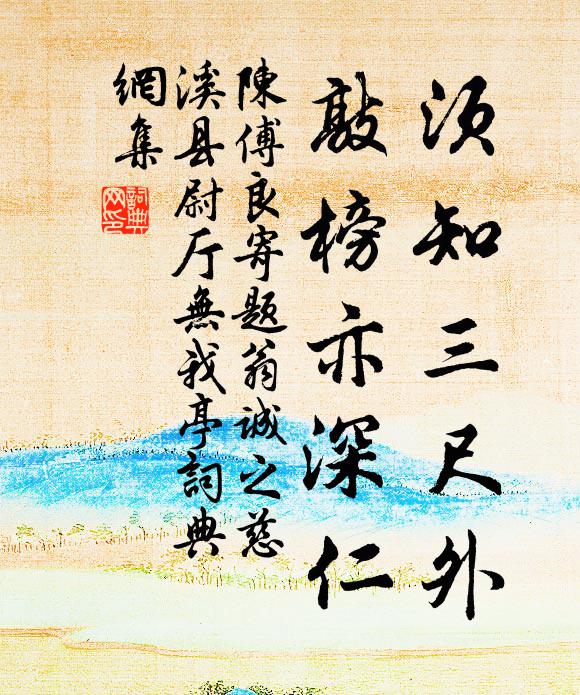 須知三尺外
敲榜亦深仁
陳傅良寄題翁誠之慈
溪县尉厅無我亭詞典
網集
詞典
网印